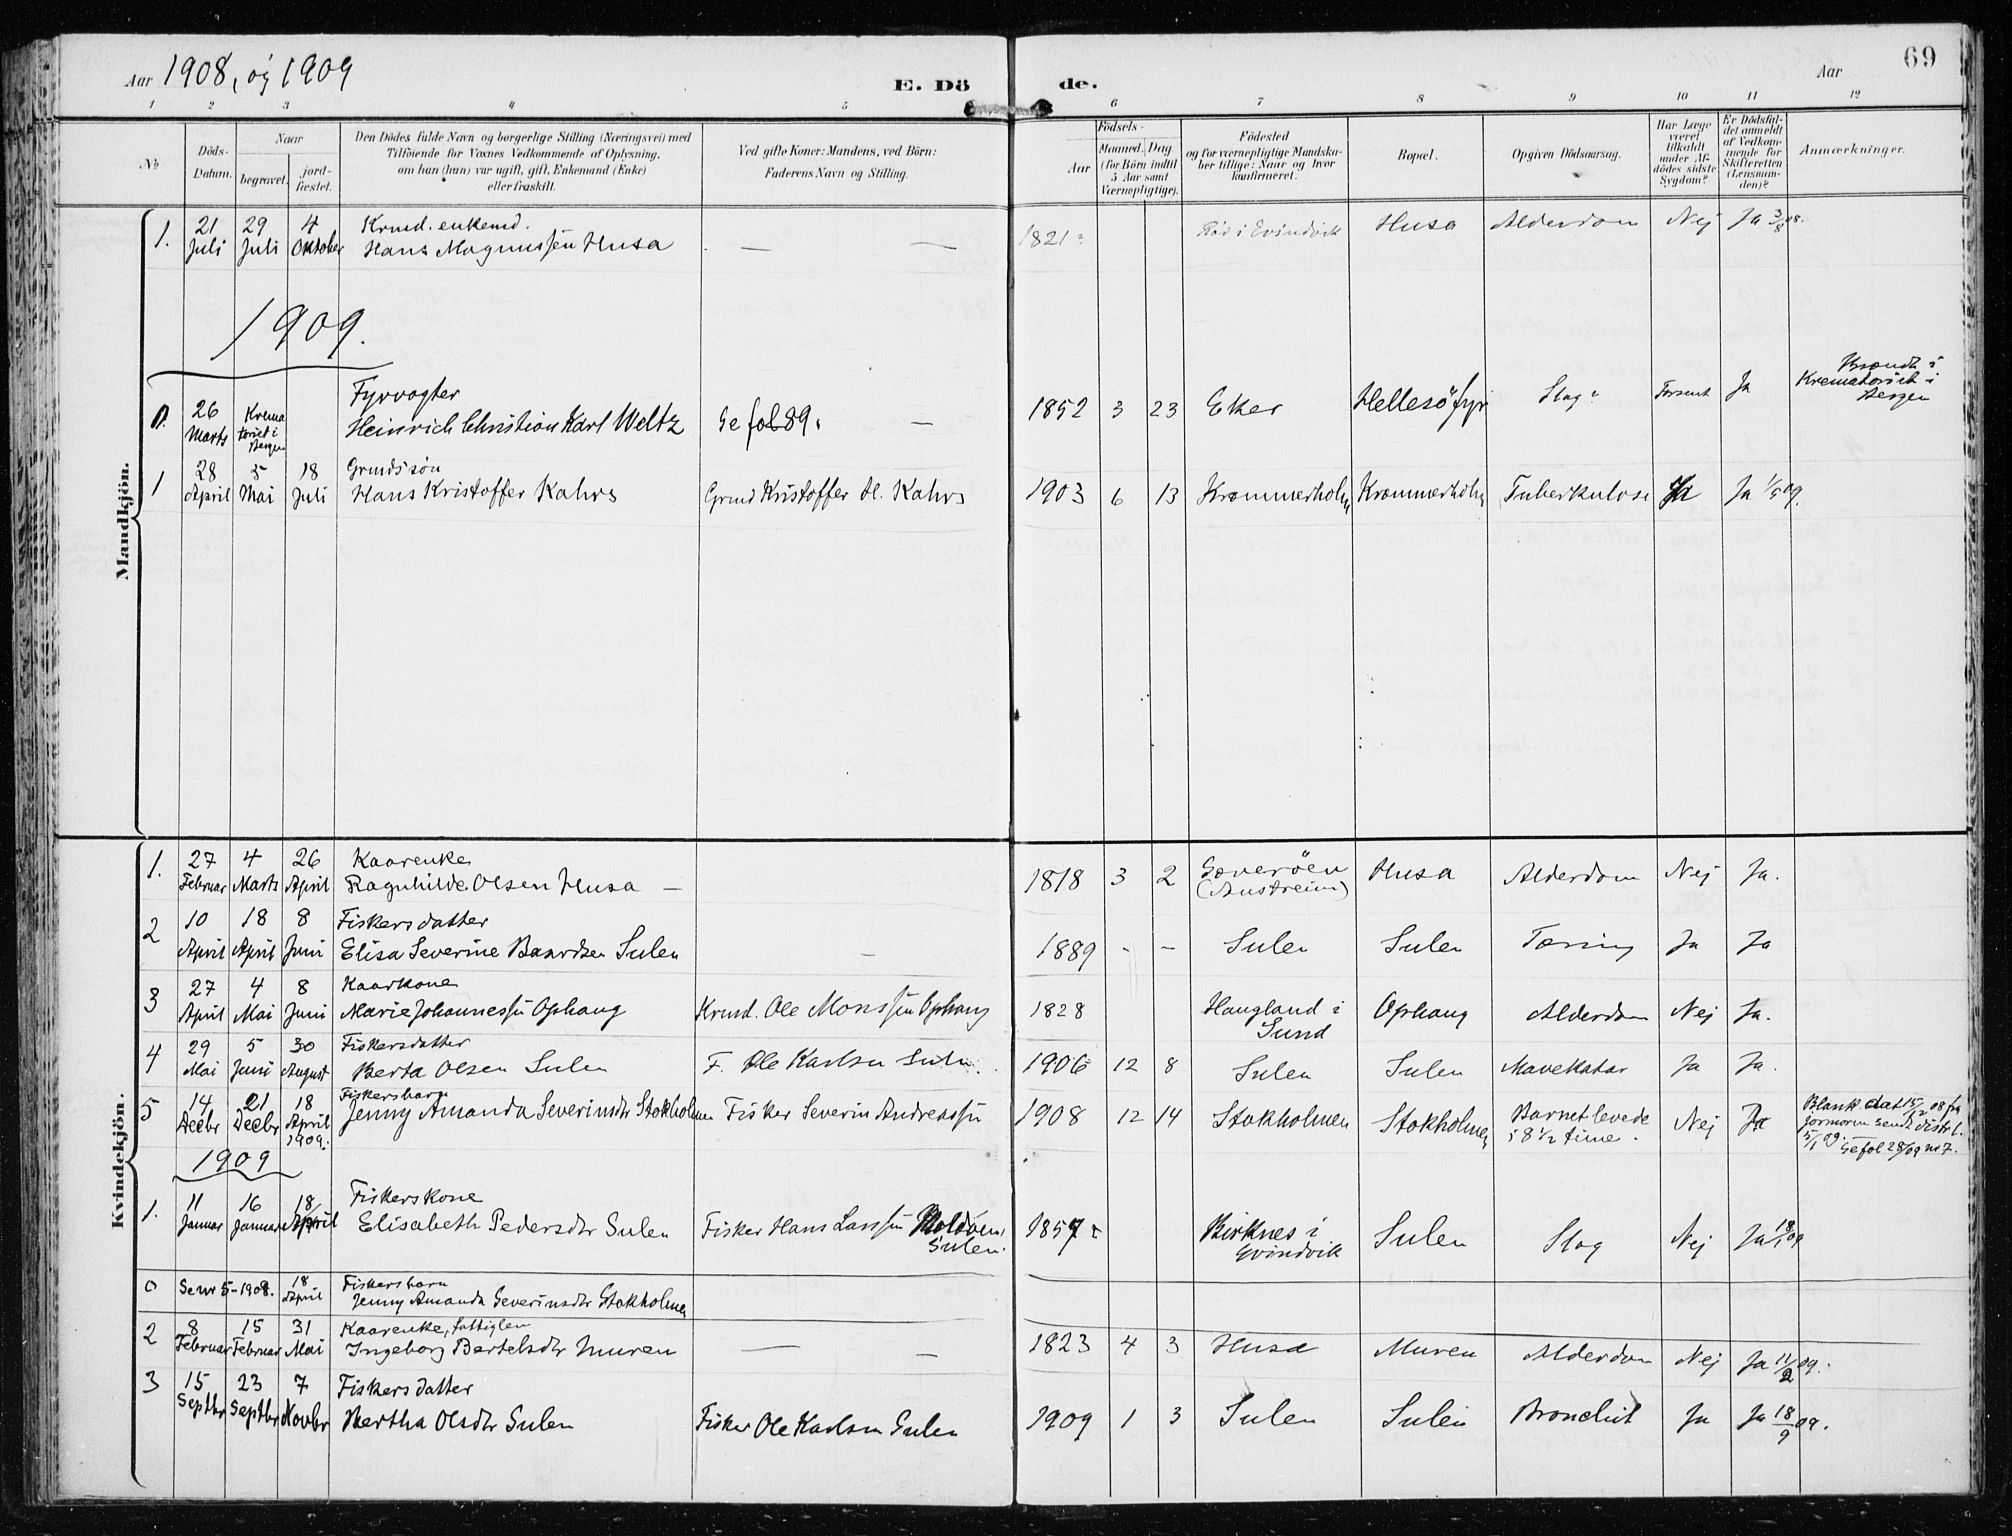 Aar 1908, og 1909
E. Dö
de.
Aar
69
1 2 3 4 5
6 7 8 9 10 11 12
No
Döds-
Datum.
Naar
begravet.
jord-
fæstet.
Den Dödes fulde Navn og borgerlige Stilling (Næringsvei) med
Tilföiende for Voxnes Vedkommende af Oplysning,
om han (hun) var ugift, gift, Enkemand (Enke)
eller fraskilt.
Ved gifte Koner: Mandens, ved Börn:
Faderens Navn og Stilling.
Födsels-
Aar
Maaned. Dag.
(for Börn indtil
5 Aar samt
Værnepligtige).
Födested
og for værnepligtige Mandska-
ber tillige: Naar og hvor
konfirmeret.
Bopæl.
Opgiven Dödsaarsag.
Har Læge
været
tilkaldt
under Af-
dödes sidste
Sygdom?
Er Dödsfal-
det anmeldt
af Vedkom-
mende for
Skifteretten
(Lensman-
den)?
Anmærkninger.
Mandkjön.
1. 21 Juli 29 Juli 4 Oktober
Krmd. enkemd.
Hans Magnussen Husa — — 1821? i Evindvik Husa Alderdom Nej Ja 3/8 08.
1909.
0. 26 Marts
Krema
toriet i
Bergen
Fyrvogter
Heinrich Christian Karl Weltz Se fol 89. — 1852 3 23 Eker Hellesö fyr Slag? Ja
Brændt i
Krematoriet i
Bergen
1 28 April 5 Mai 18 Juli
Grmdssön
Hans Kristoffer Kahrs Grmd Kristoffer H. Kahrs 1903 6 13 Krommerholm Krommerholm Tuberkulose Ja Ja 1/5 09.
Kvindekjön.
1. 27 Februar 4 Marts 26 April
Kaarenke
Ragnhilde Olsen Husa — 1818 3 2 Goveröen
(Austreim) Husa Alderdom Nej Ja.
2 10 April 18 April 8 Juni
Fiskersdatter
Elisa Severine Baardsen Sulen — 1889 - - Sulen Sulen Tæring Ja Ja
3 27 April 4 Mai 8 Juni
Kaarkone
Marie Johannessen Ophaug Krmd. Ole Monssen Ophaug 1828 Haugland i
Sund Ophaug Alderdom Nej Ja.
4 29 Mai 5 Juni 30 August
Fiskersdatter
Berta Olsen Sulen F. Ole Karlsen Sulen. 1906 12 8 Sulen Sulen Mavekatar Ja Ja.
5 14 Decbr 21 Decbr 18 April 1909.
Fiskersbarn
Jenny Amanda Severinsdtr Stokholmen Fisker Severin Andreassen 1908 12 14 Stokholmen Stokholmen Barnet levede
i 8 1/2 time. Nej Ja
Blank. dat 15/12 08 fra
jormoren sendt distr l.
5/1 09.
Se fol 28/09 nr 7.
1909
1. 11 Januar 16 Januar 18/ April
Fiskerskone
Elisabeth Pedersdtr Sulen Fisker Hans Larssen Moldöen,
Sulen. 1857? Birknes i
Evindvik Sulen Slag Nej Ja 18/1 09
0 Se nr 5 - 1908. 18 April
Fiskersbarn
Jenny Amanda Severinsdtr Stokholmen
2 8 Februar 15 Februar 31 Mai
Kaarenke, fattiglem
Ingeborg Bertelsdtr Muren — — 1823 4 3 Husa Muren Alderdom Nej Ja 11/2 09.
3 15 Septbr 23 Septbr 7 Novbr
Fiskersdatter
Bertha Olsdtr Sulen Fisker Ole Karlsen Sulen 1909 1 3 Sulen Sulen Bronchit Ja Ja 18/9 09.